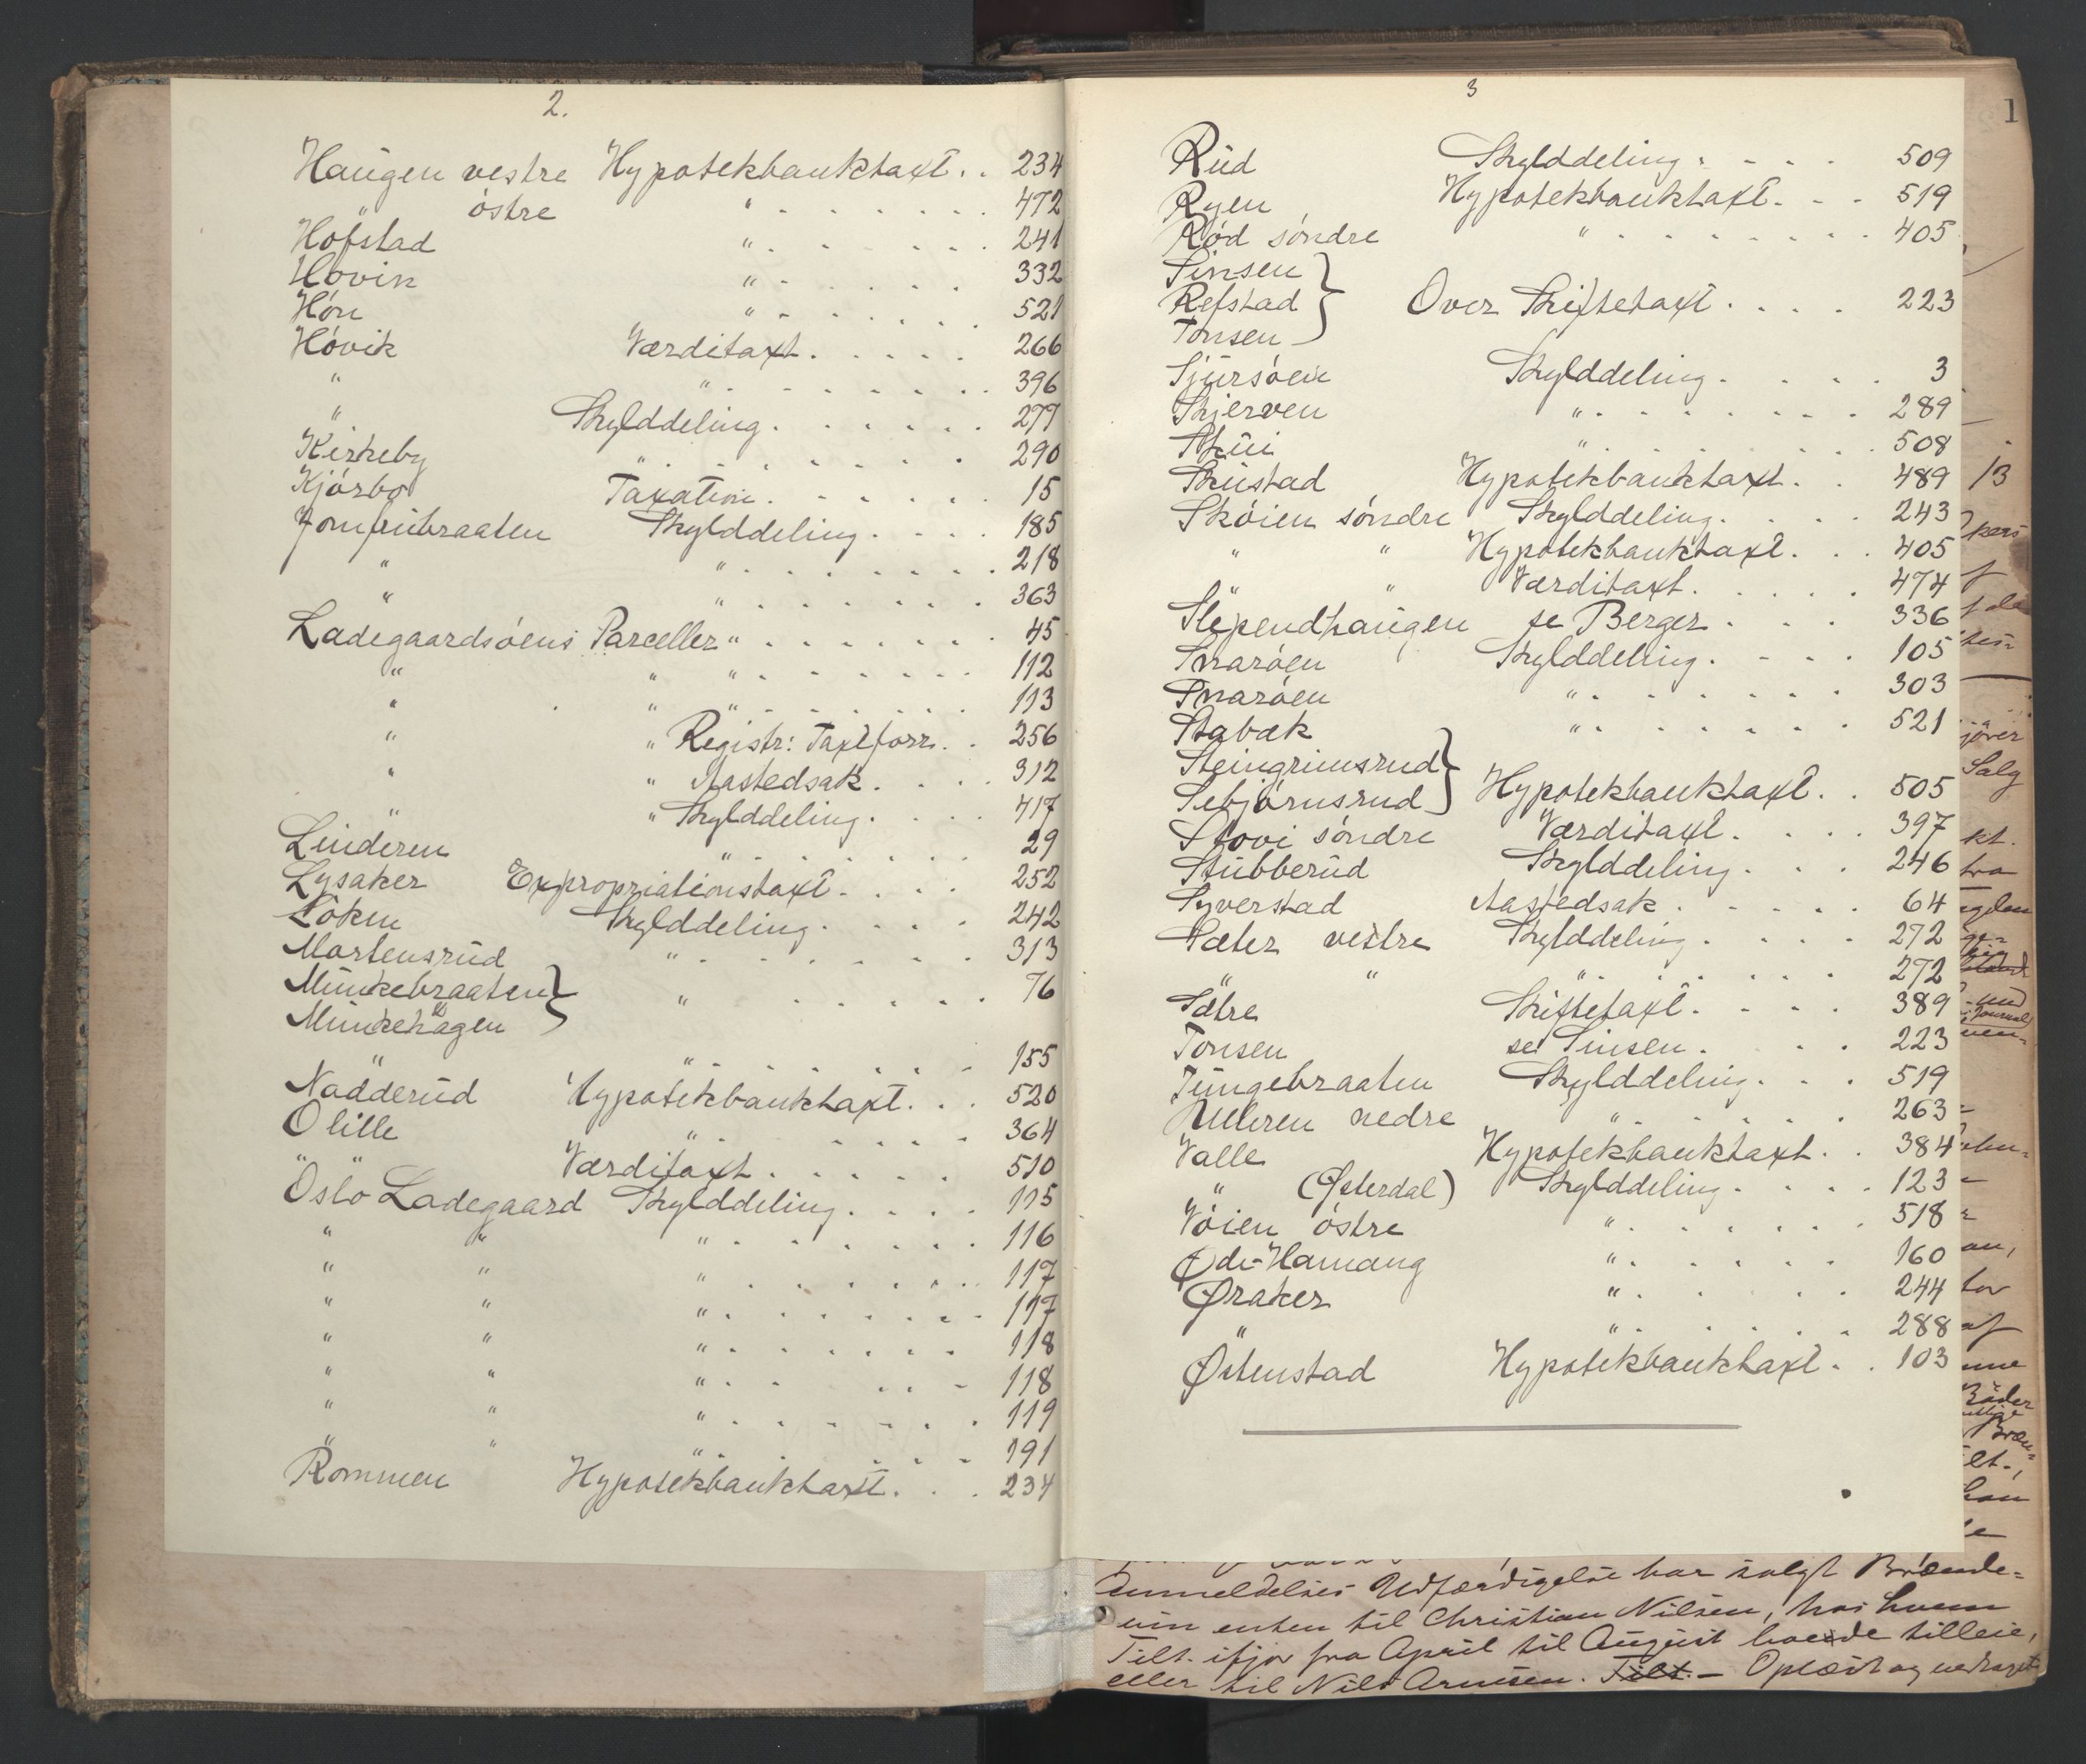 2.
Haugen vestre Hypotekbanktaxt . . 234
östre " . . . . . . 472
Hofstad " . . . . . . 241
Hovin " . . . . . . 332
Hón " . . . . . . 521
Hóvik Værditaxt . . . . . 266
" " . . . . . . 396
" Skylddeling . . . . . . 277
Kirkeby " . . . . . . 290
Kjórbo Taxation . . . . . . 15
Jomfrubraaten Skylddeling . . . . 185
" " . . . . . . 218
" " . . . . . . 363
Ladegaardsóens Parceller " . . . . . . 45
" " " . . . . . . 112
" " " . . . . . . 113
" " Registr: Taxtforr. . . 256
" " Aastedsak . . . . 312
" " Skylddeling . . . . 417
Linderen " . . . . . . 29
Lysaker Expropriationstaxt . . . . 252
Lóken Skylddeling . . . . 242
Mortensrud " . . . . . . 313
Munkebraaten } " . . . . . . 76
Munkehagen
" " . . . . . . 155
Nadderud Hypotekbanktaxt . . . 520
O lille " . . . . . 364
" " Værditaxt . . . . . 510
Oslo Ladegaard Skylddeling . . . . 115
" " " . . . . . . 116
" " " . . . . . . 117
" " " . . . . . . 117
" " " . . . . . . 118
" " " . . . . . 118
" " " . . . . . . 119
" " " . . . . . . 191
Rommen Hypotekbanktaxt . . . 234
3
Rud Skylddeling . . . . 509
Ryen Hypotekbanktaxt . . . 519
Ród sóndre " . . . . . . . 405
Sinsen }
Refstad } Over Skiftetaxt . . . . 223
Tonsen }
Sjursóen Skylddeling . . . . . 3
Skjerven " . . . . . . . 289
Skui " . . . . . . . 508
Skustad Hypotekbanktaxt . . 489
Skóien sóndre Skylddeling . . . . 243
" " Hypotekbanktaxt . . . 405
" " Værditaxt . . . . . 474
Slependhaugen se Berger . . . . 336
Snaróen Skylddeling . . . . 105
Snaróen " . . . . . . 303
Stabæk " . . . . . . 521
Steingrimsrud }
Sebjórnsrud } Hypotekbanktaxt . . 505
Stovi sóndre Værditaxt . . . . 397
Stubberud Skylddeling . . . 246
Syverstad Aastedsak . . . . . 64
Sæter vestre Skylddeling . . . . 272
" " " . . . . . . 272
Sætre Skiftetaxt . . . . 389
Tonsen se Sinsen . . . 223
Tungebraaten Skylddeling . . . 519
Ulleren nedre " . . . . . . 263
Valle Hypotekbanktaxt . . 384
" (Østerdal) Skylddeling . . . . 123
Vóien óstre " . . . . . . 518
Øde-Hamang " . . . . . 160
Øraker " . . . . . 244
" " . . . . . 288
Østenstad Hypotekbanktaxt . . 103
1
13
Salg
kt.
af
Anmeldelses Udfærdigelse har solgt Brænde-
vin enten til Christian Nilsen, hos hvem
Tilt. ifjor fra April til August boede tilleie,
eller til Nils Arnesen. Tilt. – Oplæst og vedtaget